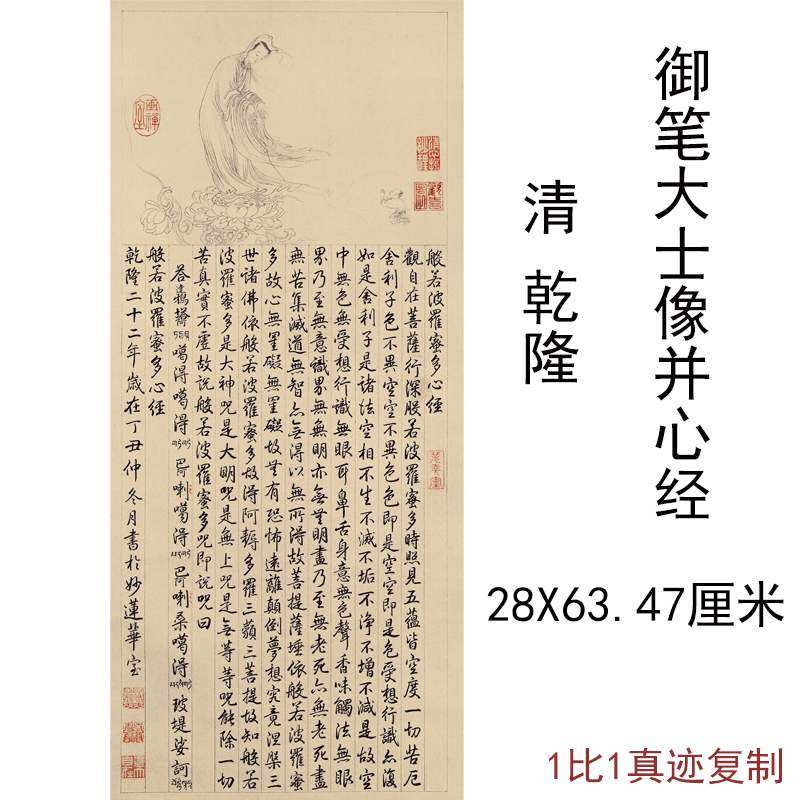 御笔大士像并心经
清 乾隆
28X63.47厘米
1比1真迹复制
般若波羅蜜多心經
觀自在菩薩行深般若波羅蜜多時照見五蘊皆空度一切苦厄
舍利子色不異空空不異色色即是空空即是色受想行識亦復
如是舍利子是諸法空相不生不滅不垢不淨不增不減是故空
中無色無受想行識無眼耳鼻舌身意無色聲香味觸法無眼
界乃至無意識界無無明亦無無明盡乃至無老死亦無老死盡
無苦集滅道無智亦無得以無所得故菩提薩埵依般若波羅蜜
多故心無罣礙無罣礙故無有恐怖遠離顛倒夢想究竟涅槃三
世諸佛依般若波羅蜜多故得阿耨多羅三藐三菩提故知般若
波羅蜜多是大神咒是大明咒是無上咒是無等等咒能除一切
苦真實不虛故說般若波羅蜜多咒即說咒曰
噶得噶得喇噶得喇桑噶得玻堤娑訶
般若波羅蜜多心經
乾隆二十二年歲在丁丑仲冬月書於妙蓮華室